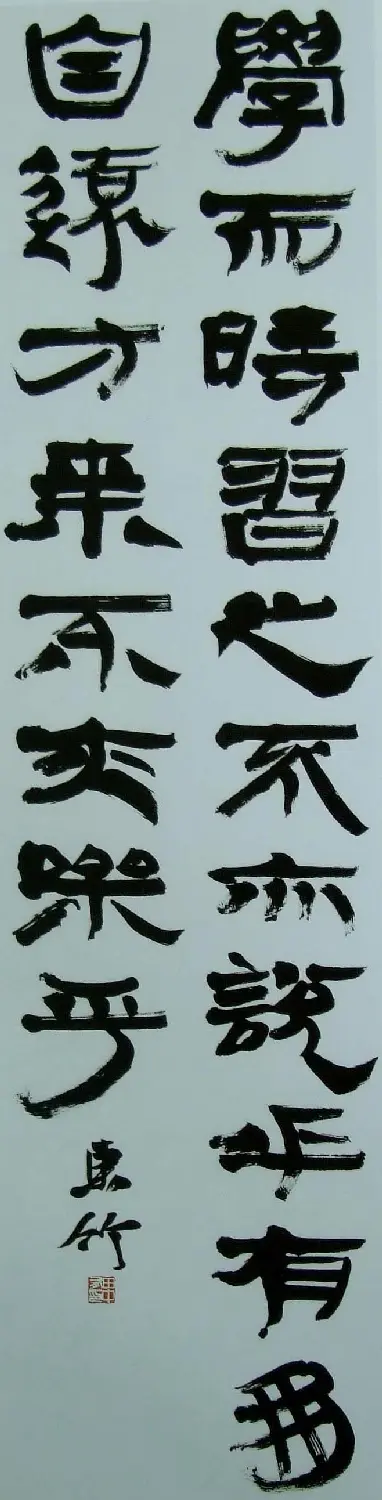 學而時習之不亦說乎有朋
自遠方来不亦樂乎
東竹